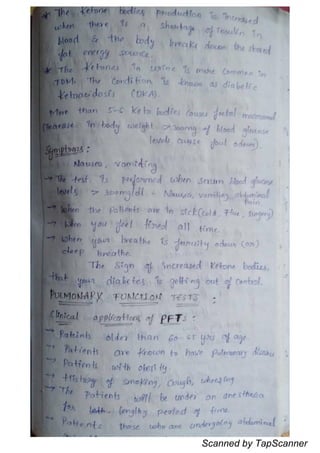 * The Ketone bodies production is increased
when there is a shortage of insulin in
blood & the body breaks down the stored
fat energy source.
* The Ketones in urine is more common in
IDDM. The condition is known as diabetic
Ketoacidosis (DKA).
More than 5-6 Keto bodies causes foetal
Increase in body weight. >300mg of blood glucose
levels cause foul odour).
Symptoms:
Nausea, vomiting
→ The test is preformed when serum blood glucose
levels > 300mg/dl - Nausea, vomiting, abdominal
pain
→ When the patients are in sick (cold, flue, surgery)
→ When you feel tired all time.
→ When your breathe is fruity odour (or)
deep breathe.
The sign of increased Ketone bodies,
that your diabetes is getting out of control.
PULMONARY FUNCTION TESTS :
Clinical applications of PFTs :
→ Pateints older than 60-65 yrs of age.
→ Patients are known to have pulmonary disease
→ Patients with obesity
→ History of smoking, cough, wheezing
→ The Patients will be under an anesthesia
for lengthy period of time.
→ Patients those who are undergoing abdominal
Scanned by TapScanner